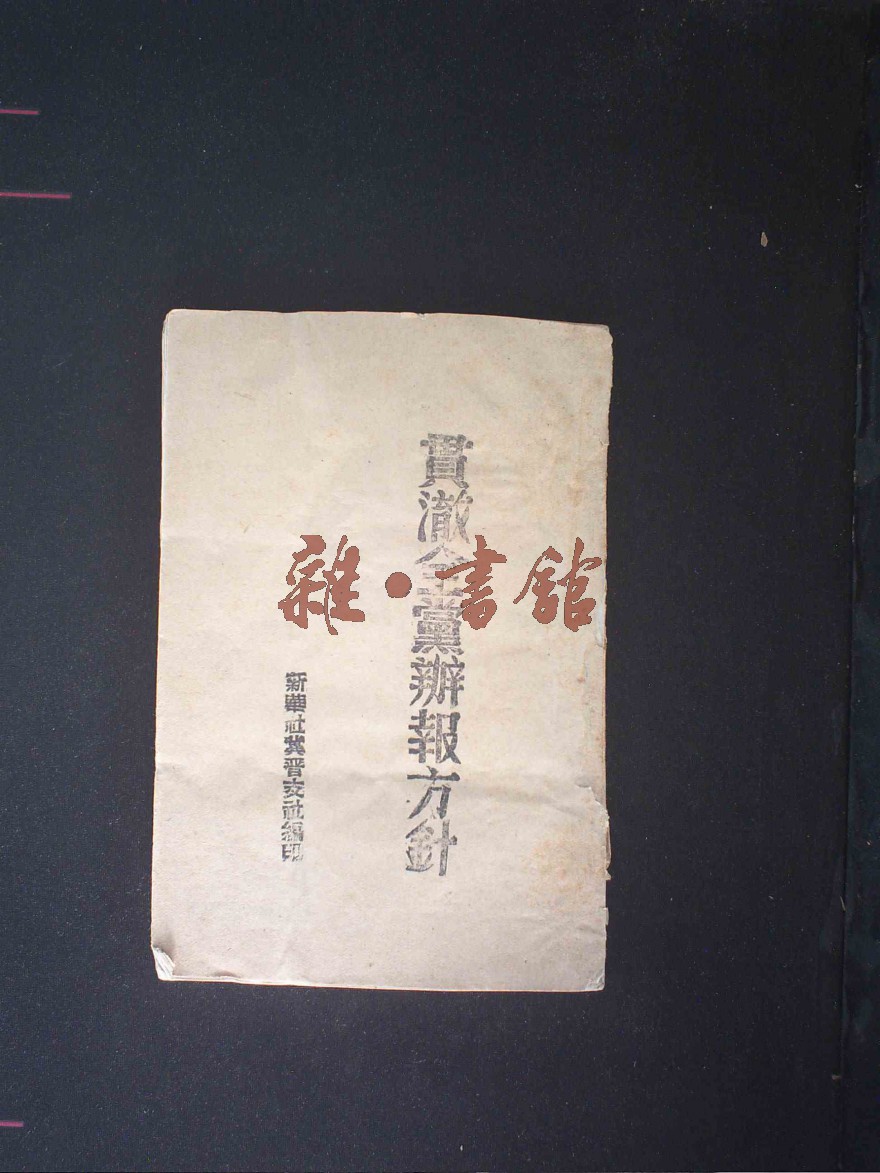 貫澈全黨辦報方針
新華社冀晋支社編印
雜·書館